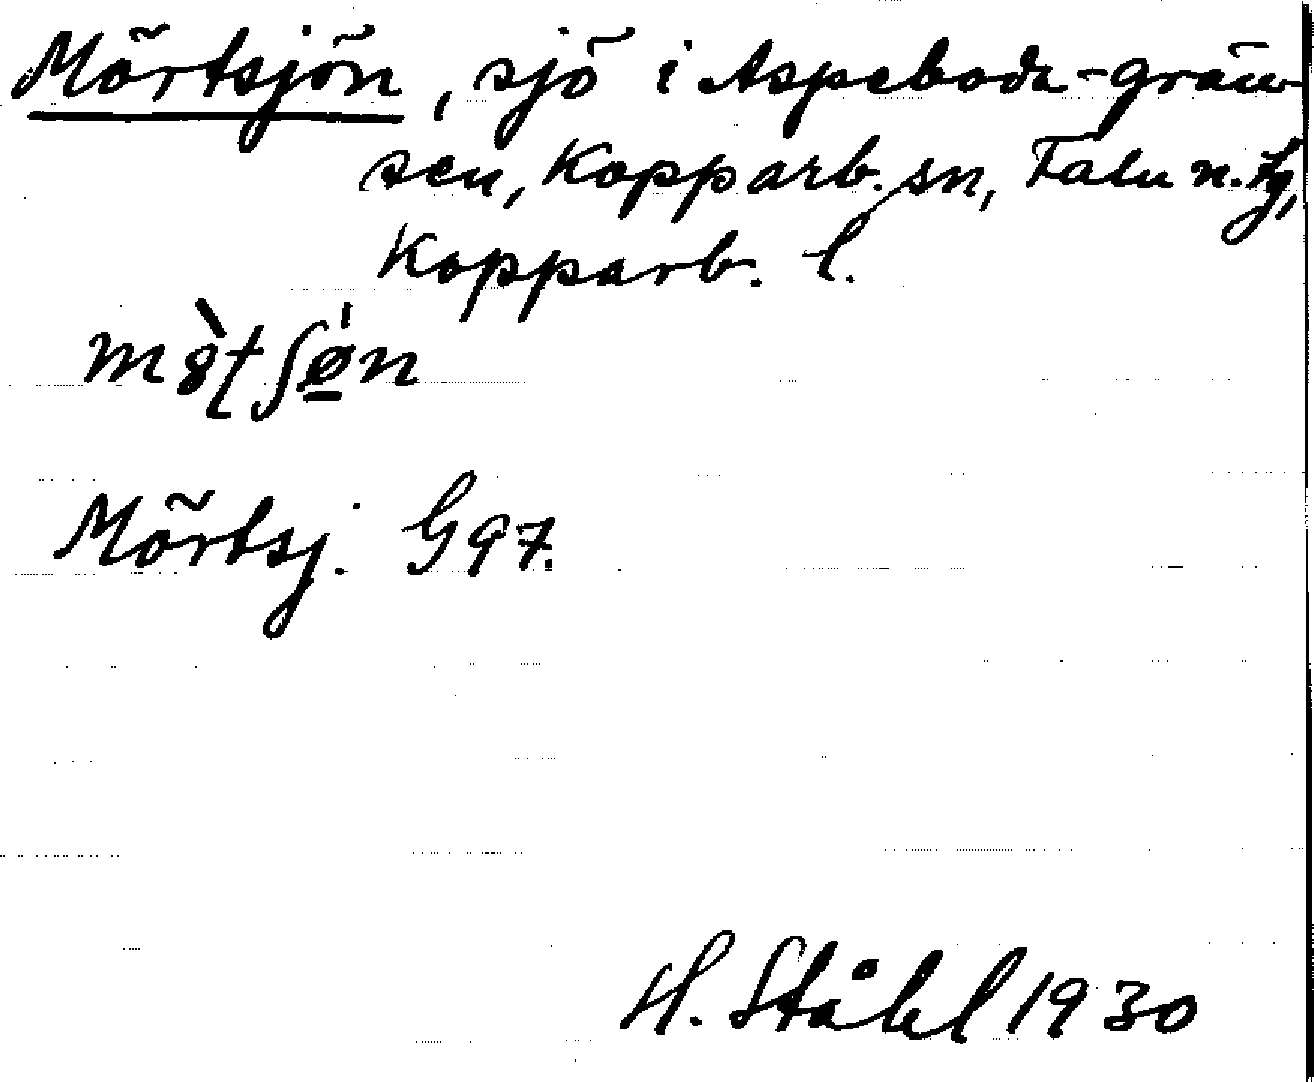 Mörtsjön, sjö i Aspeboda-grän-
sen, Kopparb. sn, Falu n. tg,
Kopparb. l.
Mörtsj. G97.
H. Ståhl 1930